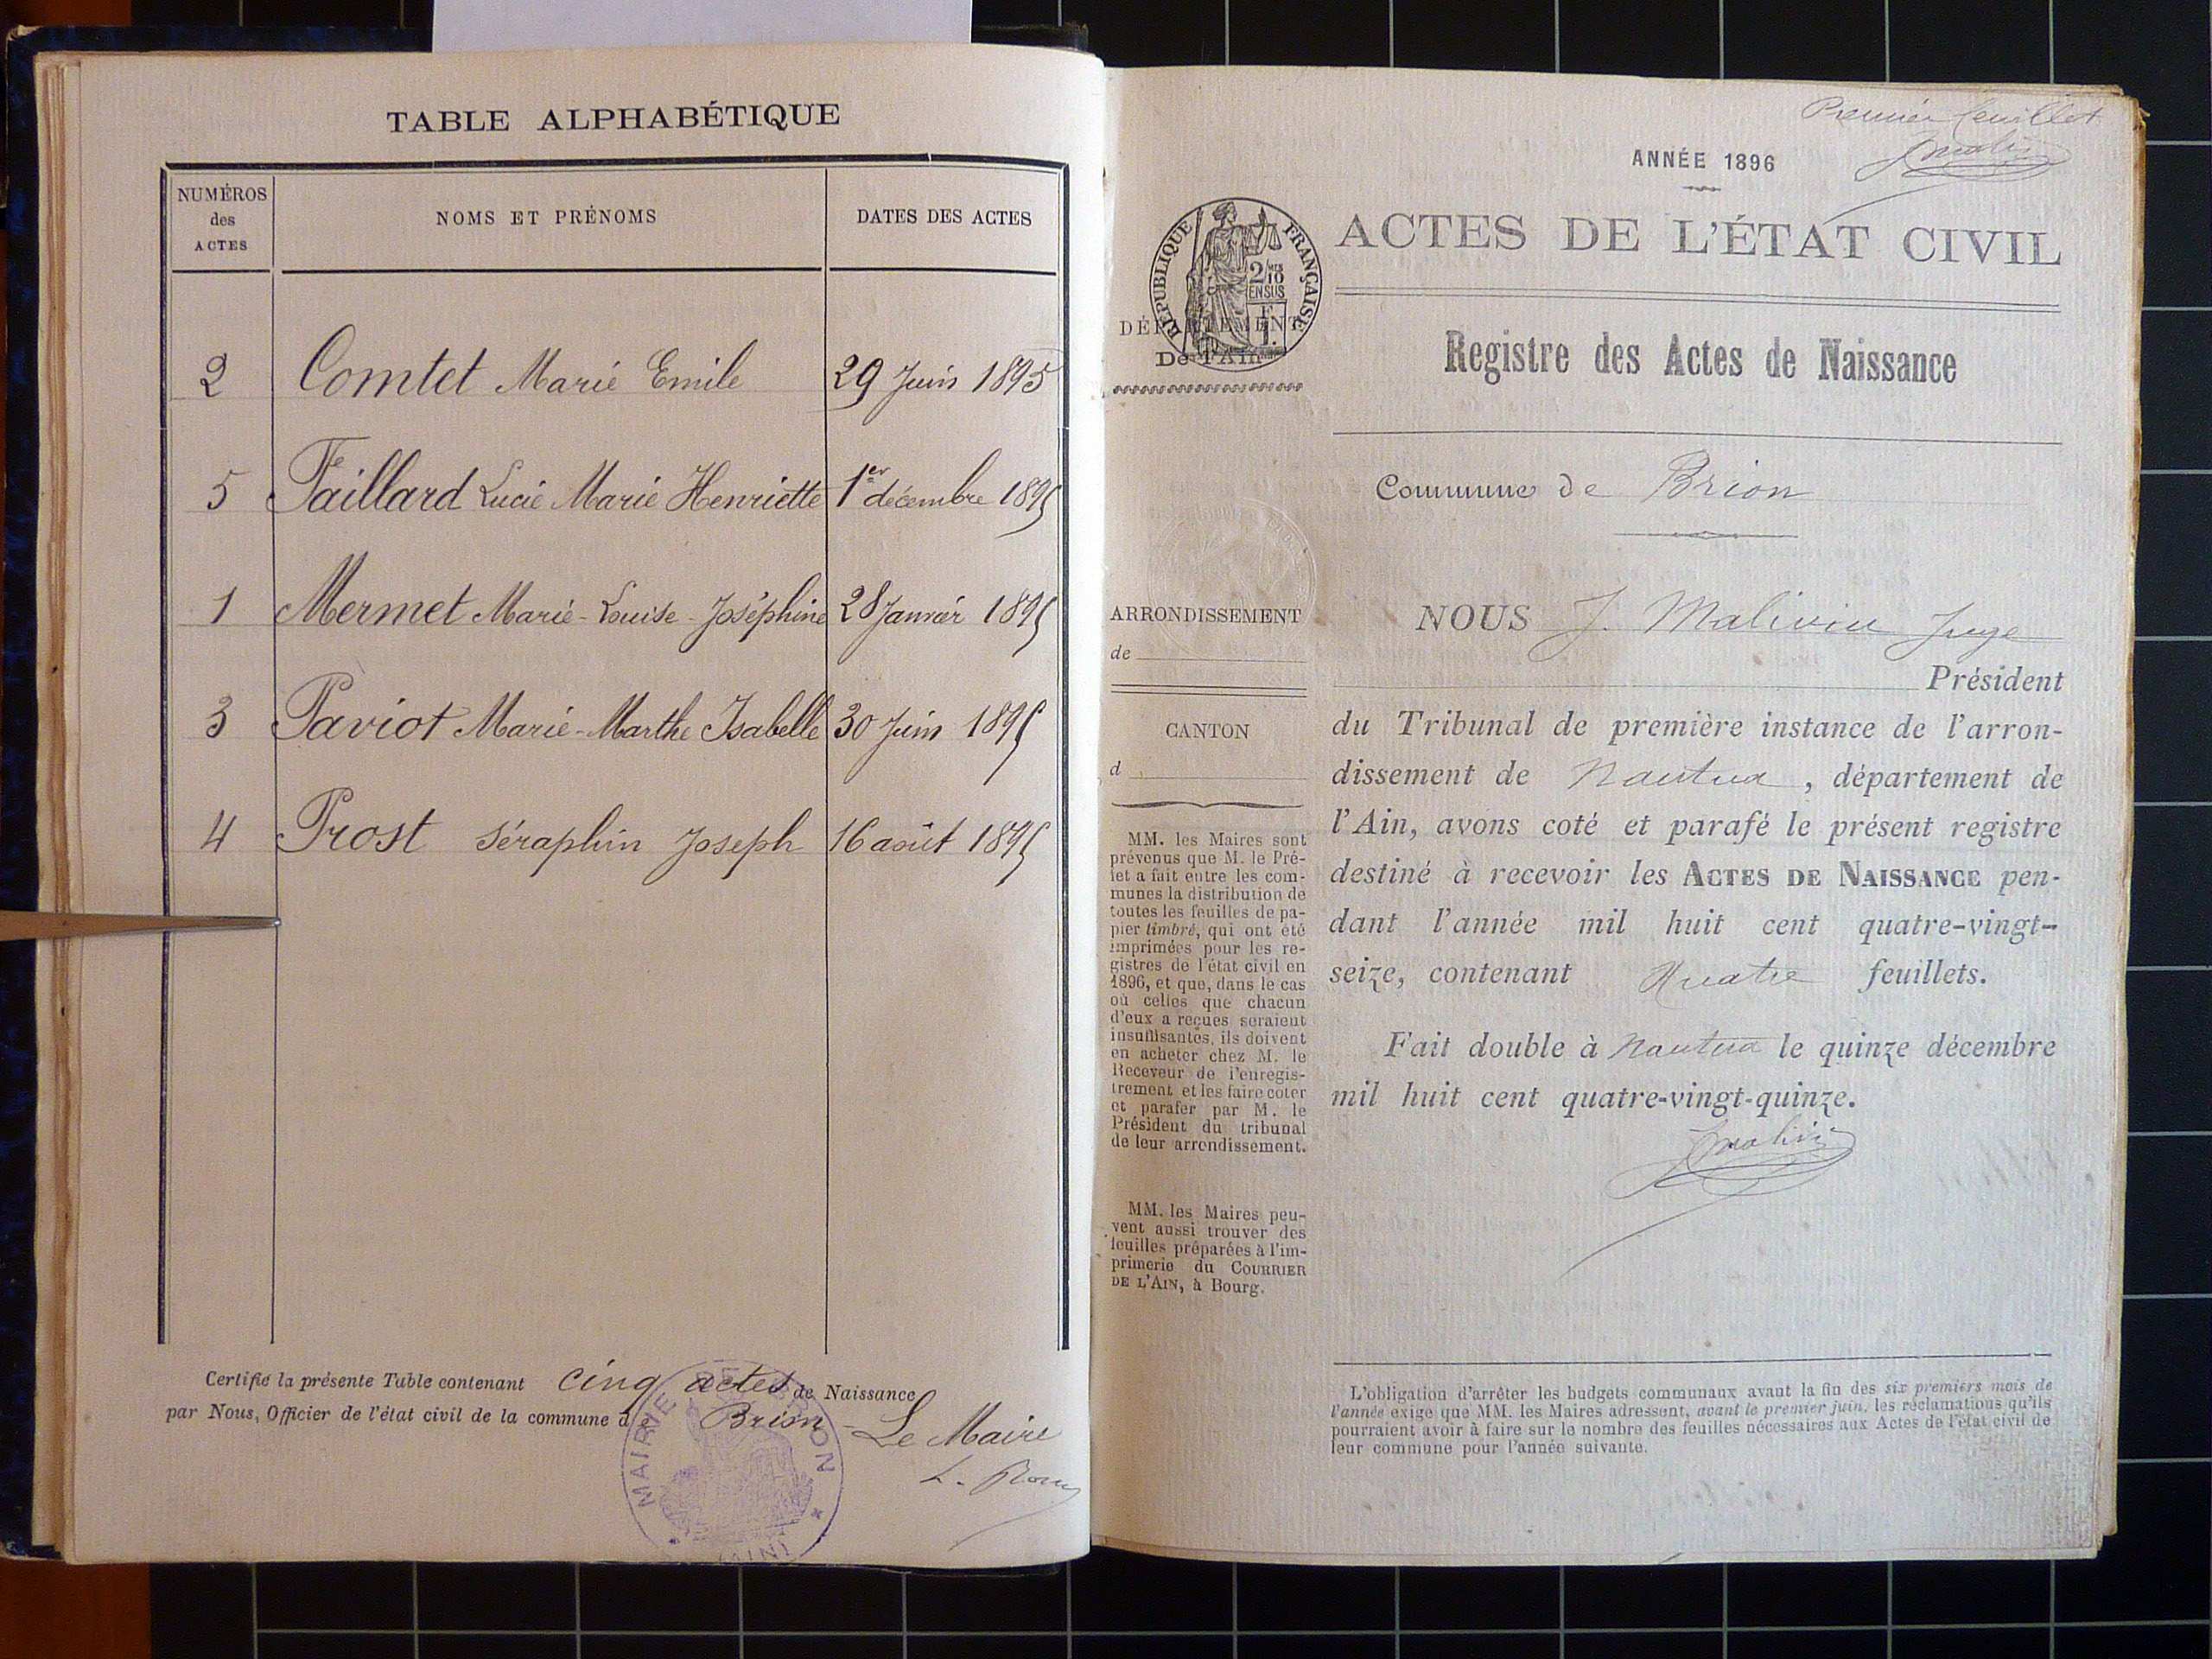 TABLE ALPHABÉTIQUE
NUMÉROS
des
ACTES
NOMS ET PRÉNOMS
DATES DES ACTES
2 Comtet Marie Emile 29 Juin 1895
5 Faillard Lucie Marie Henriette 1er décembre 1895
1 Mermet Marie-Louise-Joséphine 28 Janvier 1895
3 Paviot Marie-Marthe Isabelle 30 Juin 1895
4 Prost Séraphin Joseph 16 août 1895
Certifié la présente Table contenant cinq actes de Naissance
par Nous, Officier de l'état civil de la commune de Brion
Le Maire
MAIRIE DE BRION
AIN
Premier feuillet
ANNÉE 1896
RÉPUBLIQUE FRANÇAISE
2/10mes
EN SUS
ACTES DE L'ÉTAT CIVIL
DÉPARTEMENT
De l'Ain
Registre des Actes de Naissance
Commune de Brion
ARRONDISSEMENT
de
CANTON
d
MM. les Maires sont
prévenus que M. le Pré-
fet a fait entre les com-
munes la distribution de
toutes les feuilles de pa-
pier timbré, qui ont été
imprimées pour les re-
gistres de l'état civil en
1896, et que, dans le cas
où celles que chacun
d'eux a reçues seraient
insuffisantes, ils doivent
en acheter chez M. le
Receveur de l'enregis-
trement et les faire coter
et parafer par M. le
Président du tribunal
de leur arrondissement.
MM. les Maires peu-
vent aussi trouver des
feuilles préparées à l'im-
primerie du COURRIER
DE L'AIN, à Bourg.
NOUS J. Malivin Juge
Président
du Tribunal de première instance de l'arron-
dissement de Nantua, département de
l'Ain, avons coté et parafé le présent registre
destiné à recevoir les ACTES DE NAISSANCE pen-
dant l'année mil huit cent quatre-vingt-
seize, contenant Quatre feuillets.
Fait double à Nantua le quinze décembre
mil huit cent quatre-vingt-quinze.
L'obligation d'arrêter les budgets communaux avant la fin des six premiers mois de
l'année exige que MM. les Maires adressent, avant le premier juin, les réclamations qu'ils
pourraient avoir à faire sur le nombre des feuilles nécessaires aux Actes de l'état civil de
leur commune pour l'année suivante.